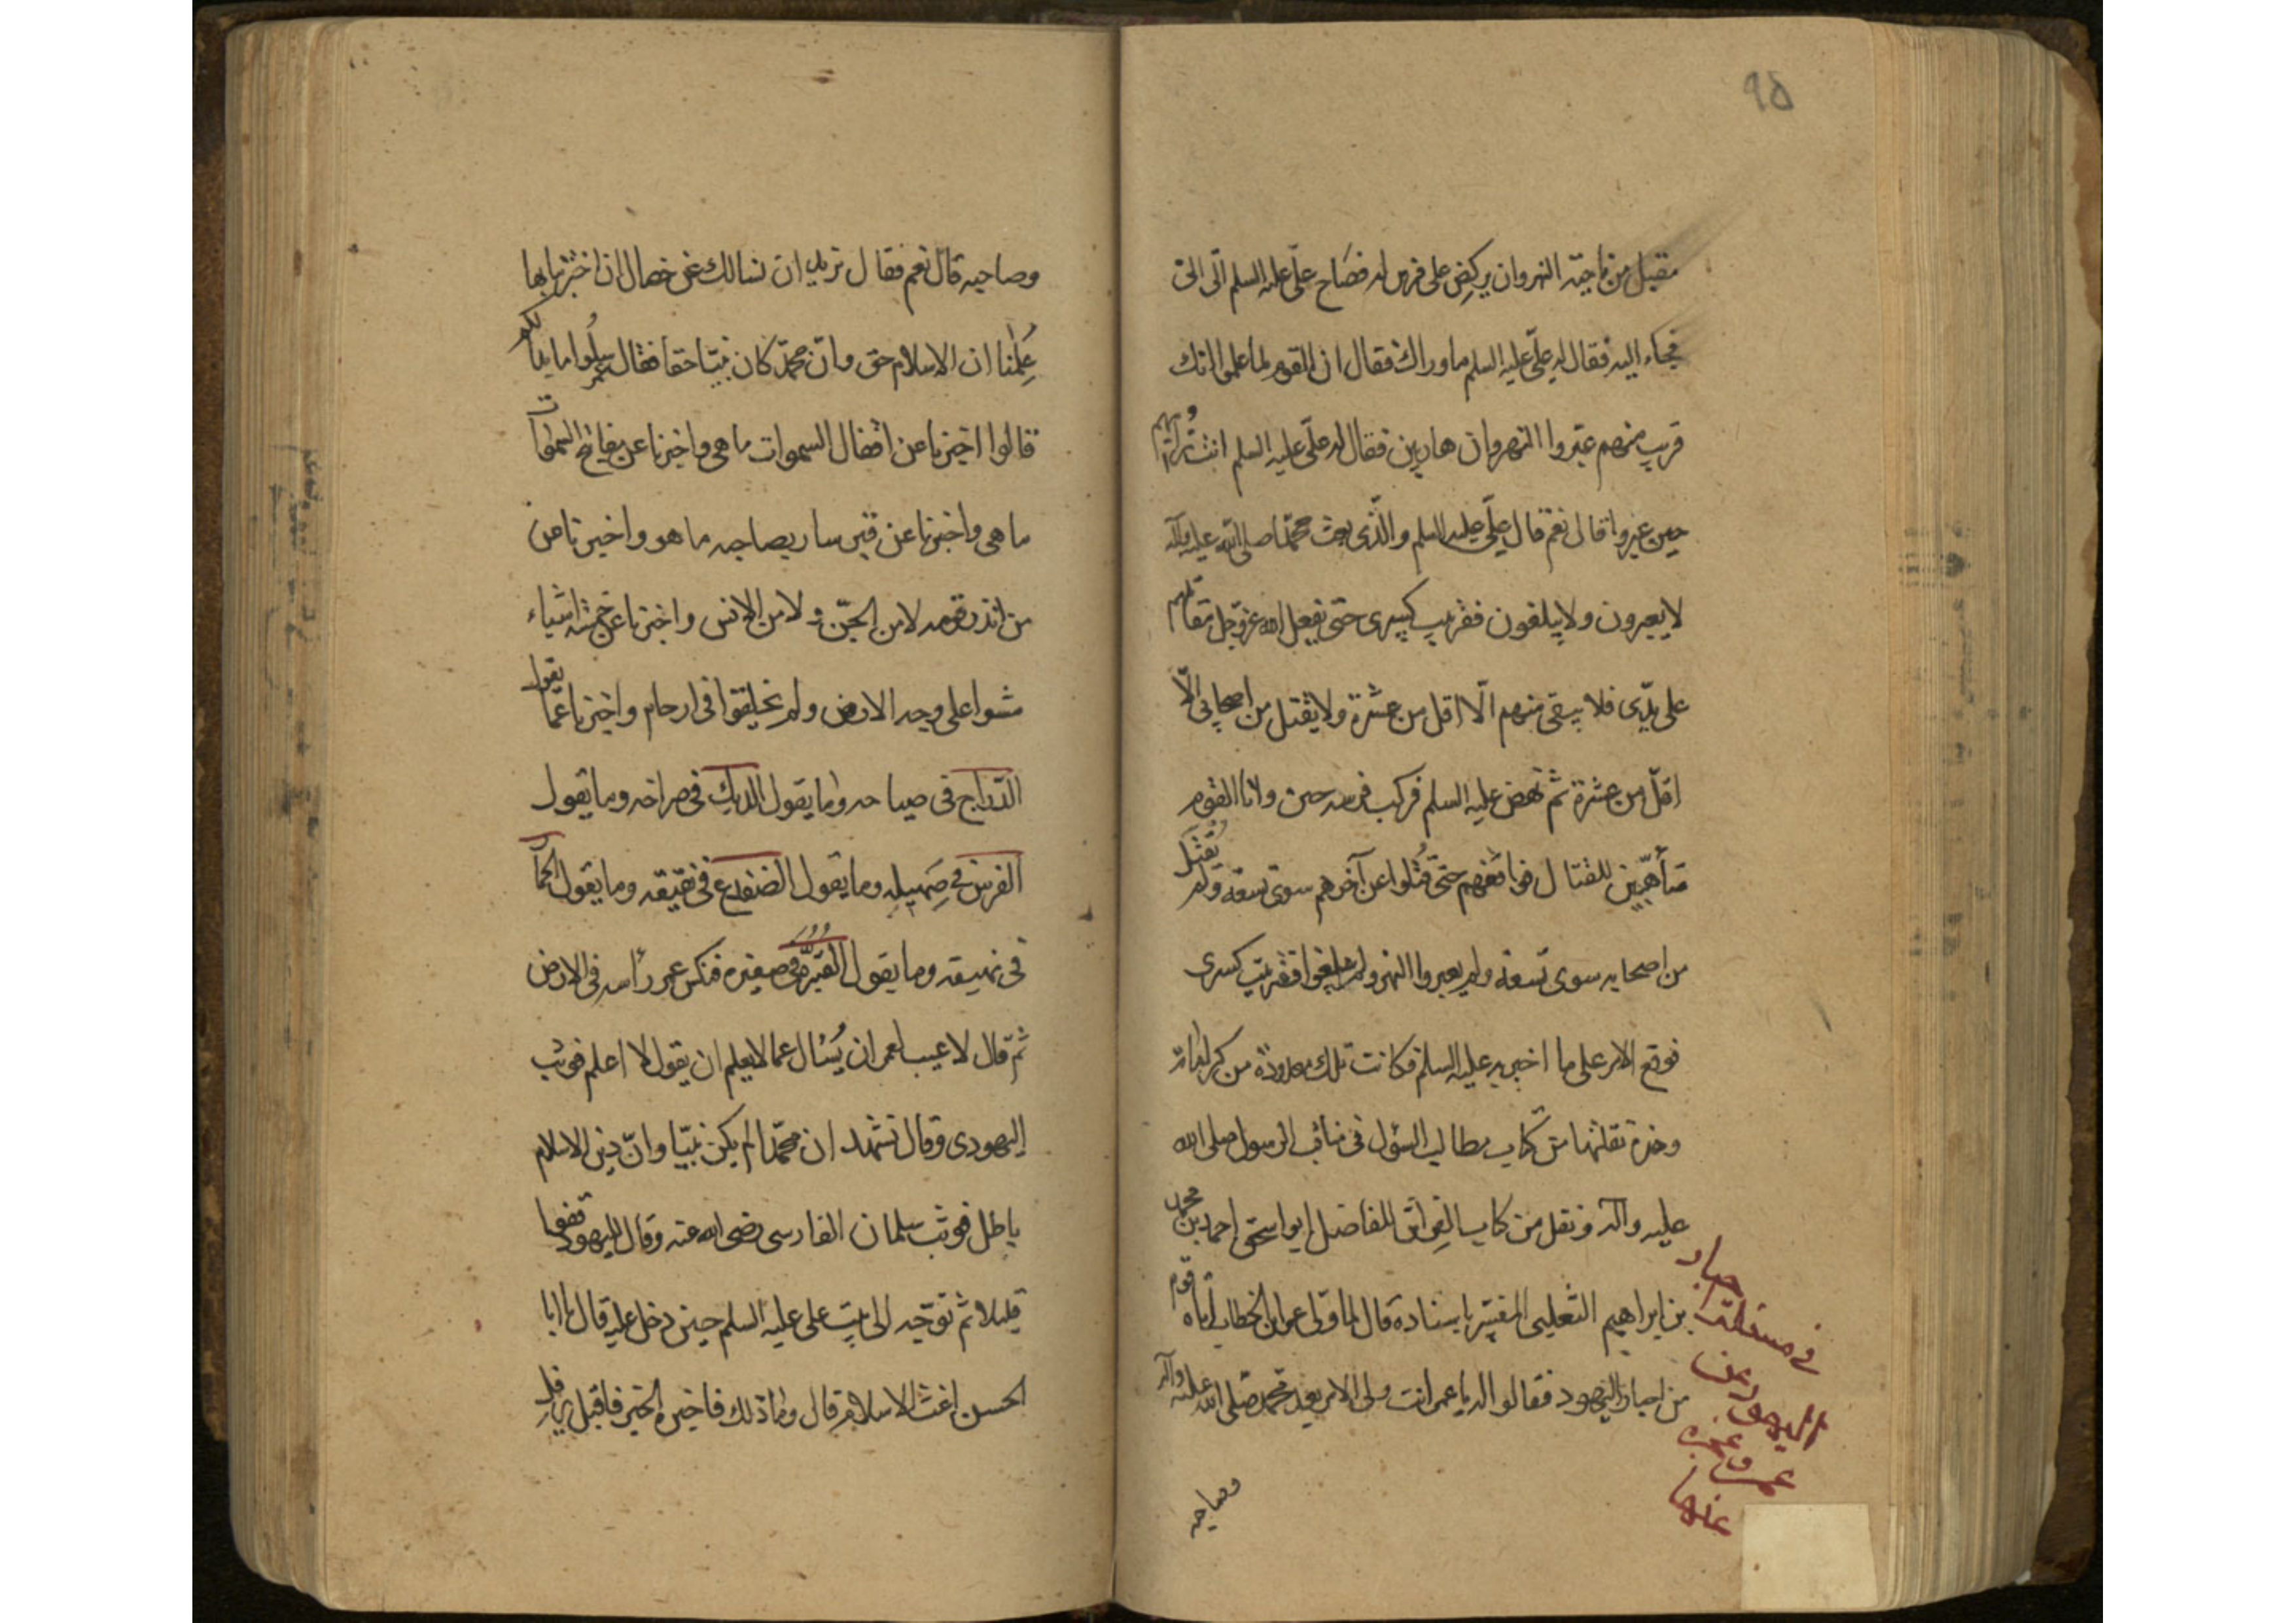 ٩٥
مقبل من ناحيته النهروان يركض على فرس له فصاح علىّ عليه السلم الىّ الىّ
فجاء اليه فقال له علىّ عليه السلم ما وراك فقال ان القوم لما علموا انك
قريب منهم عبروا النهروان هاربين فقال له علىّ عليه السلم انت رأيتهم
حين عبروا قال نعم قال علىّ عليه السلم والّذى بعث محمّدا صلى الله عليه وآله
لا يعبرون ولا يبلغون قصر بنت كسرى حتى يفعل الله عزّوجلّ مقاتلهم
على يدّى فلا يبقى منهم الّا اقل من عشرة ولا يقتل من اصحابى الّا
اقلّ من عشرة ثم نهض عليه السلم فركب فرسه حين واتا القوم
متأهّبين للقتال فواقعهم حتّى قُتلوا عن آخرهم سوى تسعة ولم يُقتل
من اصحابه سوى تسعة ولم يعبروا النهر ولم يبلغوا قصر بنت كسرى
فوقع الامر على ما اخبر به عليه السلم فكانت تلك معدودة من كراماته
وهذه نقلتها من كتاب مطالب السؤل فى مناقب الرسول صلى الله
عليه وآله ونقل من كتاب العرائس للفاضل ابو اسحق احمد بن محمد
بن ابراهيم الثعلبى المفسّر باسناده قال لما ولى عمر ابن الخطاب اتاه قوم
من احبار اليهود فقالوا له يا عمر انت ولى الامر بعد محمّد صلّى الله عليه وآله
وصاحبه
فى مسئلة احبار
اليهود عن
عمر وعجزه
عنها
وصاحبه قال نعم فقال نريد ان نسالك عن خصال ان اخبرتنا بها
عَلِمنا ان الاسلام حق وانّ محمّد كان نبيّا حقا فقال عمر سلُوا ما بدا لكم
قالوا اخبرنا عن اقفال السموات ما هى واخبرنا عن مفاتيح السموات
ما هى واخبرنا عن قبر سار بصاحبه ما هو واخبرنا عن
من انذر قومه لا من الجنّ ولا من الانس واخبرنا عن خمسة اشياء
مشوا على وجه الارض ولم يخلقوا فى ارحام واخبرنا عمّا يقول
الدّراج فى صياحه وما يقول الديك فى صراخه وما يقول
الفرس فى صَهيله وما يقول الضفدع فى نقيقه وما يقول الحمار
فى نهيقه وما يقول القُبَّرة فى صفيره فنكس عمر رأسه فى الارض
ثمّ قال لا عيب لعمر ان يُسئال عما لا يعلم ان يقول لا اعلم فوثب
اليهودى وقال نشهد ان محمّدا لم يكن نبيّا وانّ دين الاسلام
باطل فوثب سلمان الفارسى رضى الله عنه وقال لليهود قفوا
قليلا ثم توجّه الى بيت على عليه السلم حين دخل عليه قال يا ابا
الحسن اغث الاسلام قال وما ذلك فاخبره الخبر فاقبل يرفل